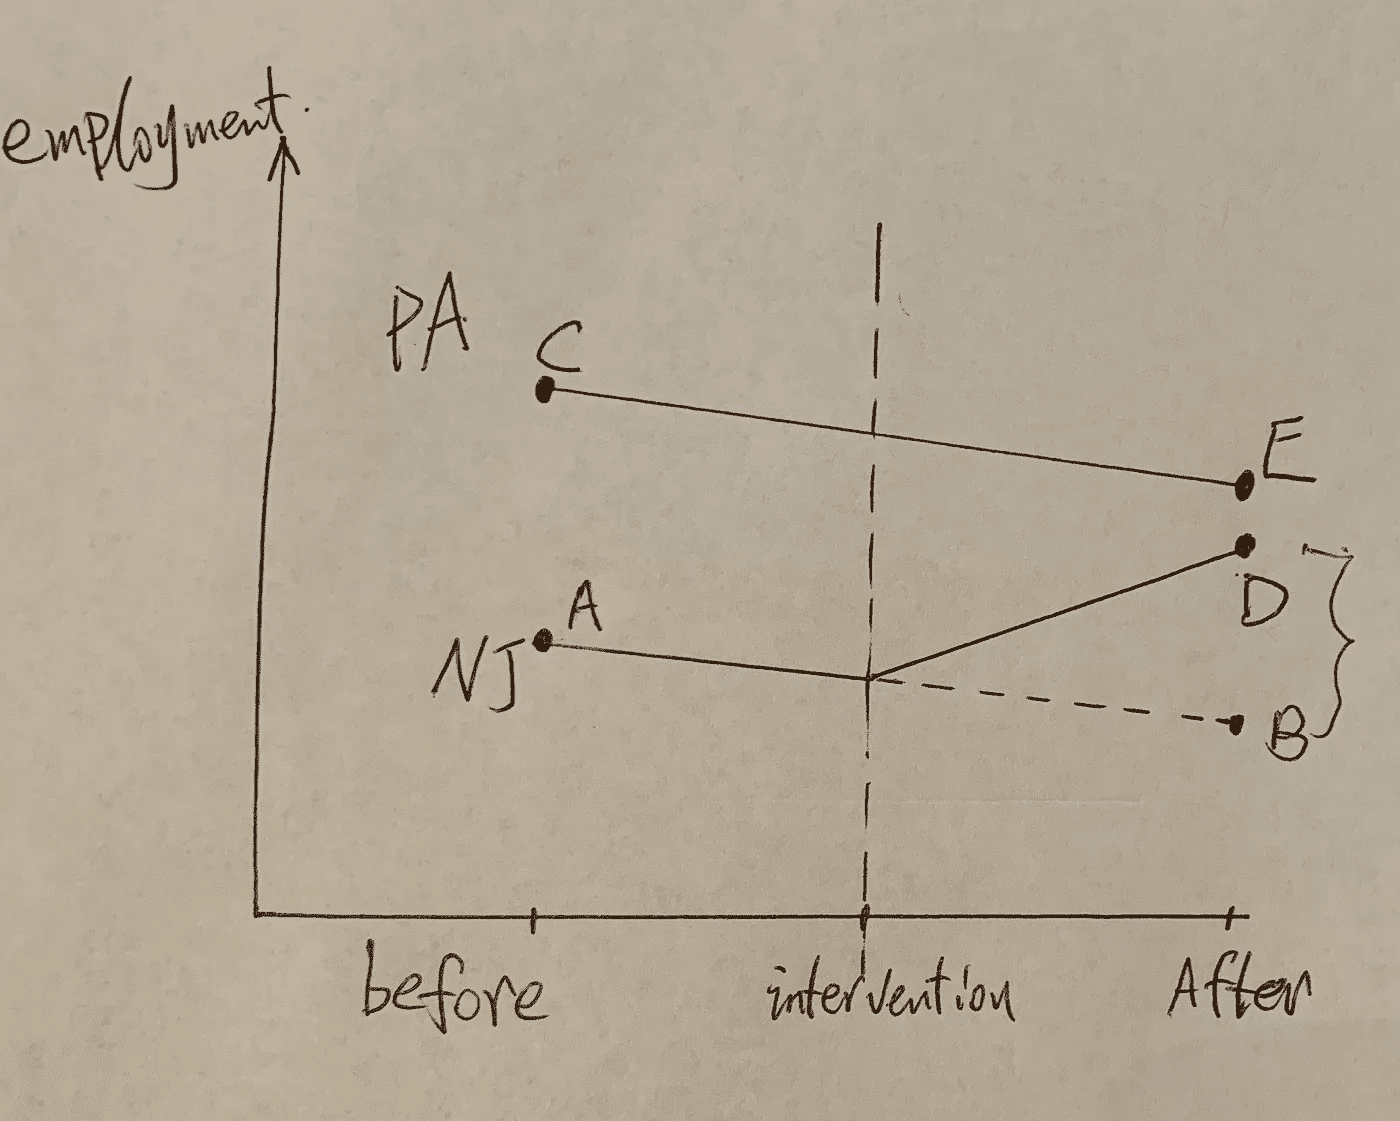 employment.
PA
C
E
D
A
NJ
B
before
intervention
After